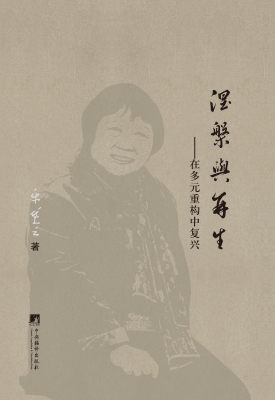 涅槃與再生
——在多元重构中复兴
著
中央编译出版社